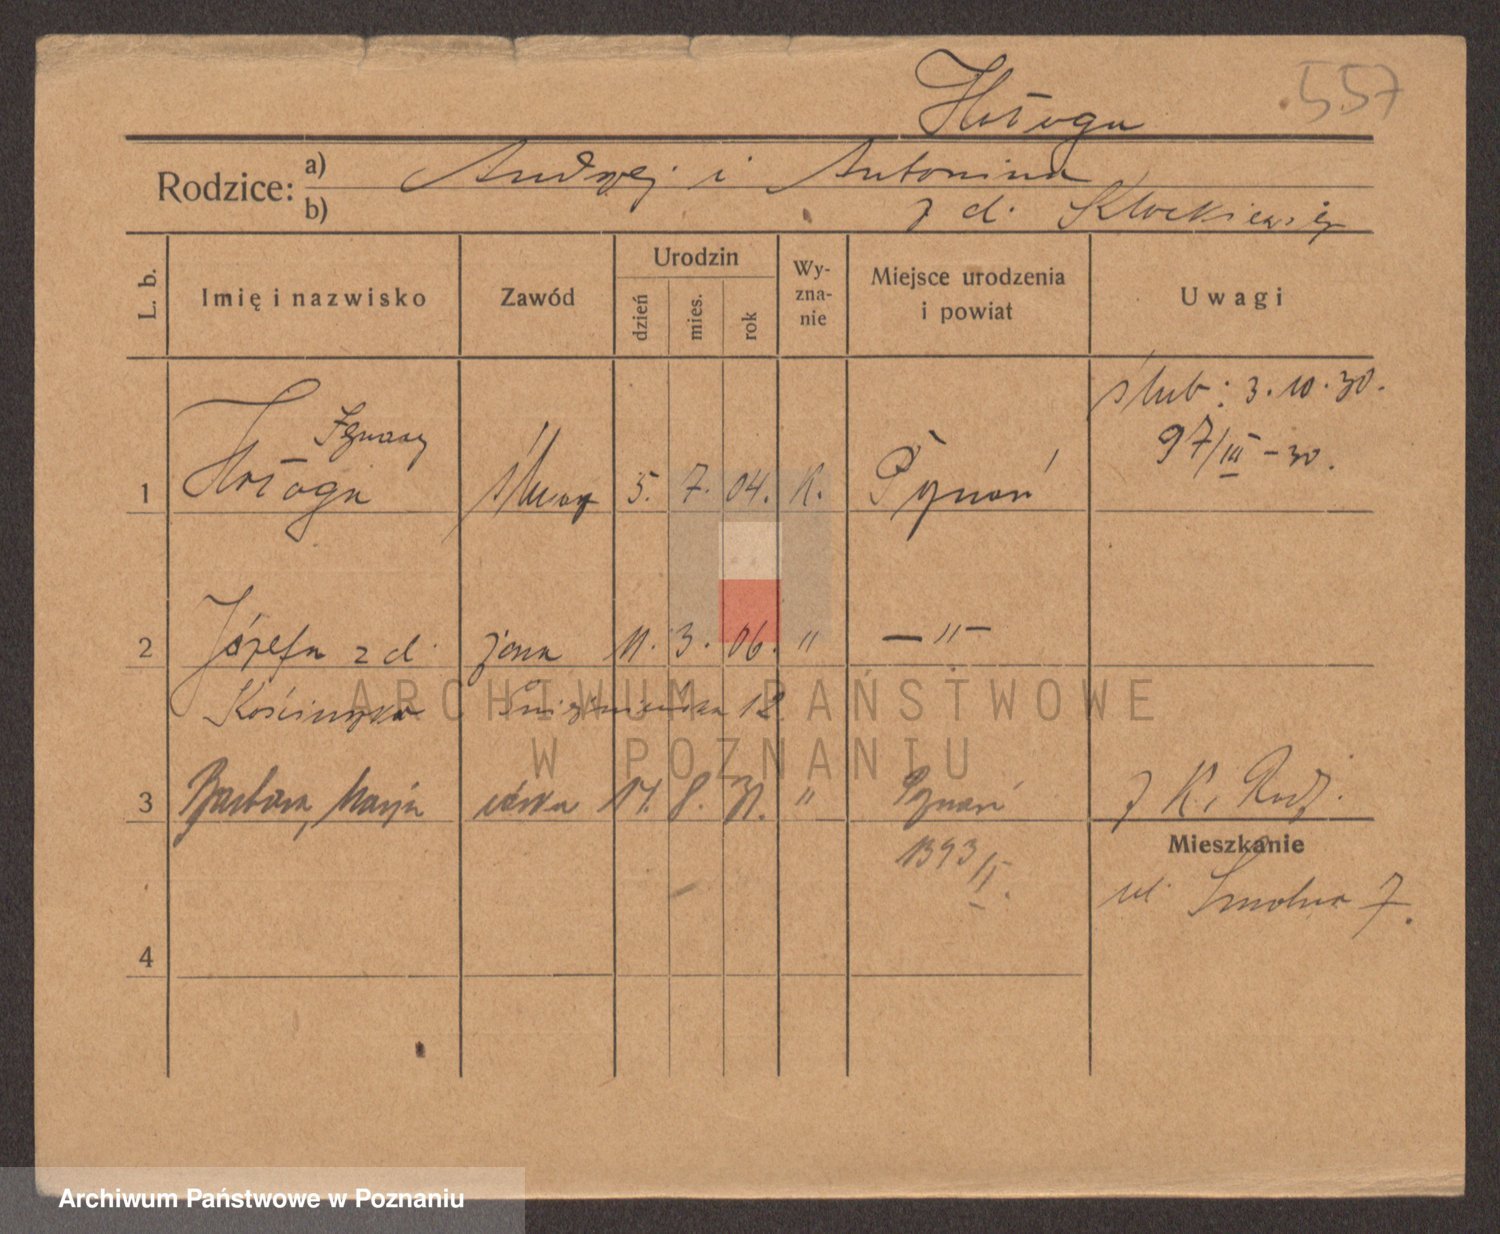 Hołoga 557
Rodzice: a) Andrzej i Antonina
b) z d.
L. b.
Imię i nazwisko
Zawód
Urodzin
dzień
mies.
rok
Wy-
zna-
nie
Miejsce urodzenia
i powiat
Uwagi
ślub: 3.10.30.
97/III-30.
Ignacy
1 Hołoga 5. 7. 04. K. Poznań
2 Józefa z d. żona 11. 3. 06. " — " —
12
3 Barbara, Marja córka 17. 8. 31. " Poznań z K. Rodz.
1393/II.
Mieszkanie
ul. Smolna 7.
4
ARCHIWUM PAŃSTWOWE
W POZNANIU
Archiwum Państwowe w Poznaniu